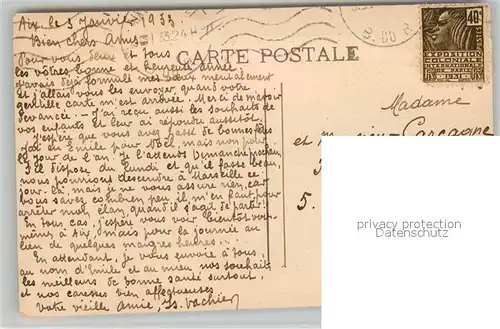 Aix le 3 Janvier 1933
Bien chers Amis,
CARTE POSTALE
Pour vous deux et tous
les vôtres bonne et heureuse année.
J'avais déjà formulé mes vœux mentalement
et j'allais vous les envoyer, quand votre
gentille carte m'est arrivée. Merci de m'avoir
devancée. J'ai reçu aussi les souhaits de
vos enfants et leur ai répondu aussitôt.
J'espère que vous avez passé de bonnes fêtes
J'ai eu Emile pour Noël, mais non pour
le jour de l'an. Je l'attends Dimanche prochain
S'il dispose du lundi et qu'il fasse beau,
nous pourrions descendre à Marseille ce
jour-là, mais je ne vous assure rien, car
vous savez combien peu il m'en faut pour
arrêter mon élan, quand il s'agit de partir!
En tous cas, j'espère vous voir bientôt vous-
même, à Aix, mais pour la journée au
lieu de quelques maigres heures...
En attendant, je vous envoie à tous,
au nom d'Emile et au mien nos souhaits
les meilleurs de bonne santé surtout,
et nos caresses bien affectueuses
Votre vieille Amie, Is. Vachier
40c
EXPOSITION
COLONIALE
INTERNATIONALE
PARIS
1931
Madame
et Monsieur Carcagne
5.
privacy protection
Datenschutz